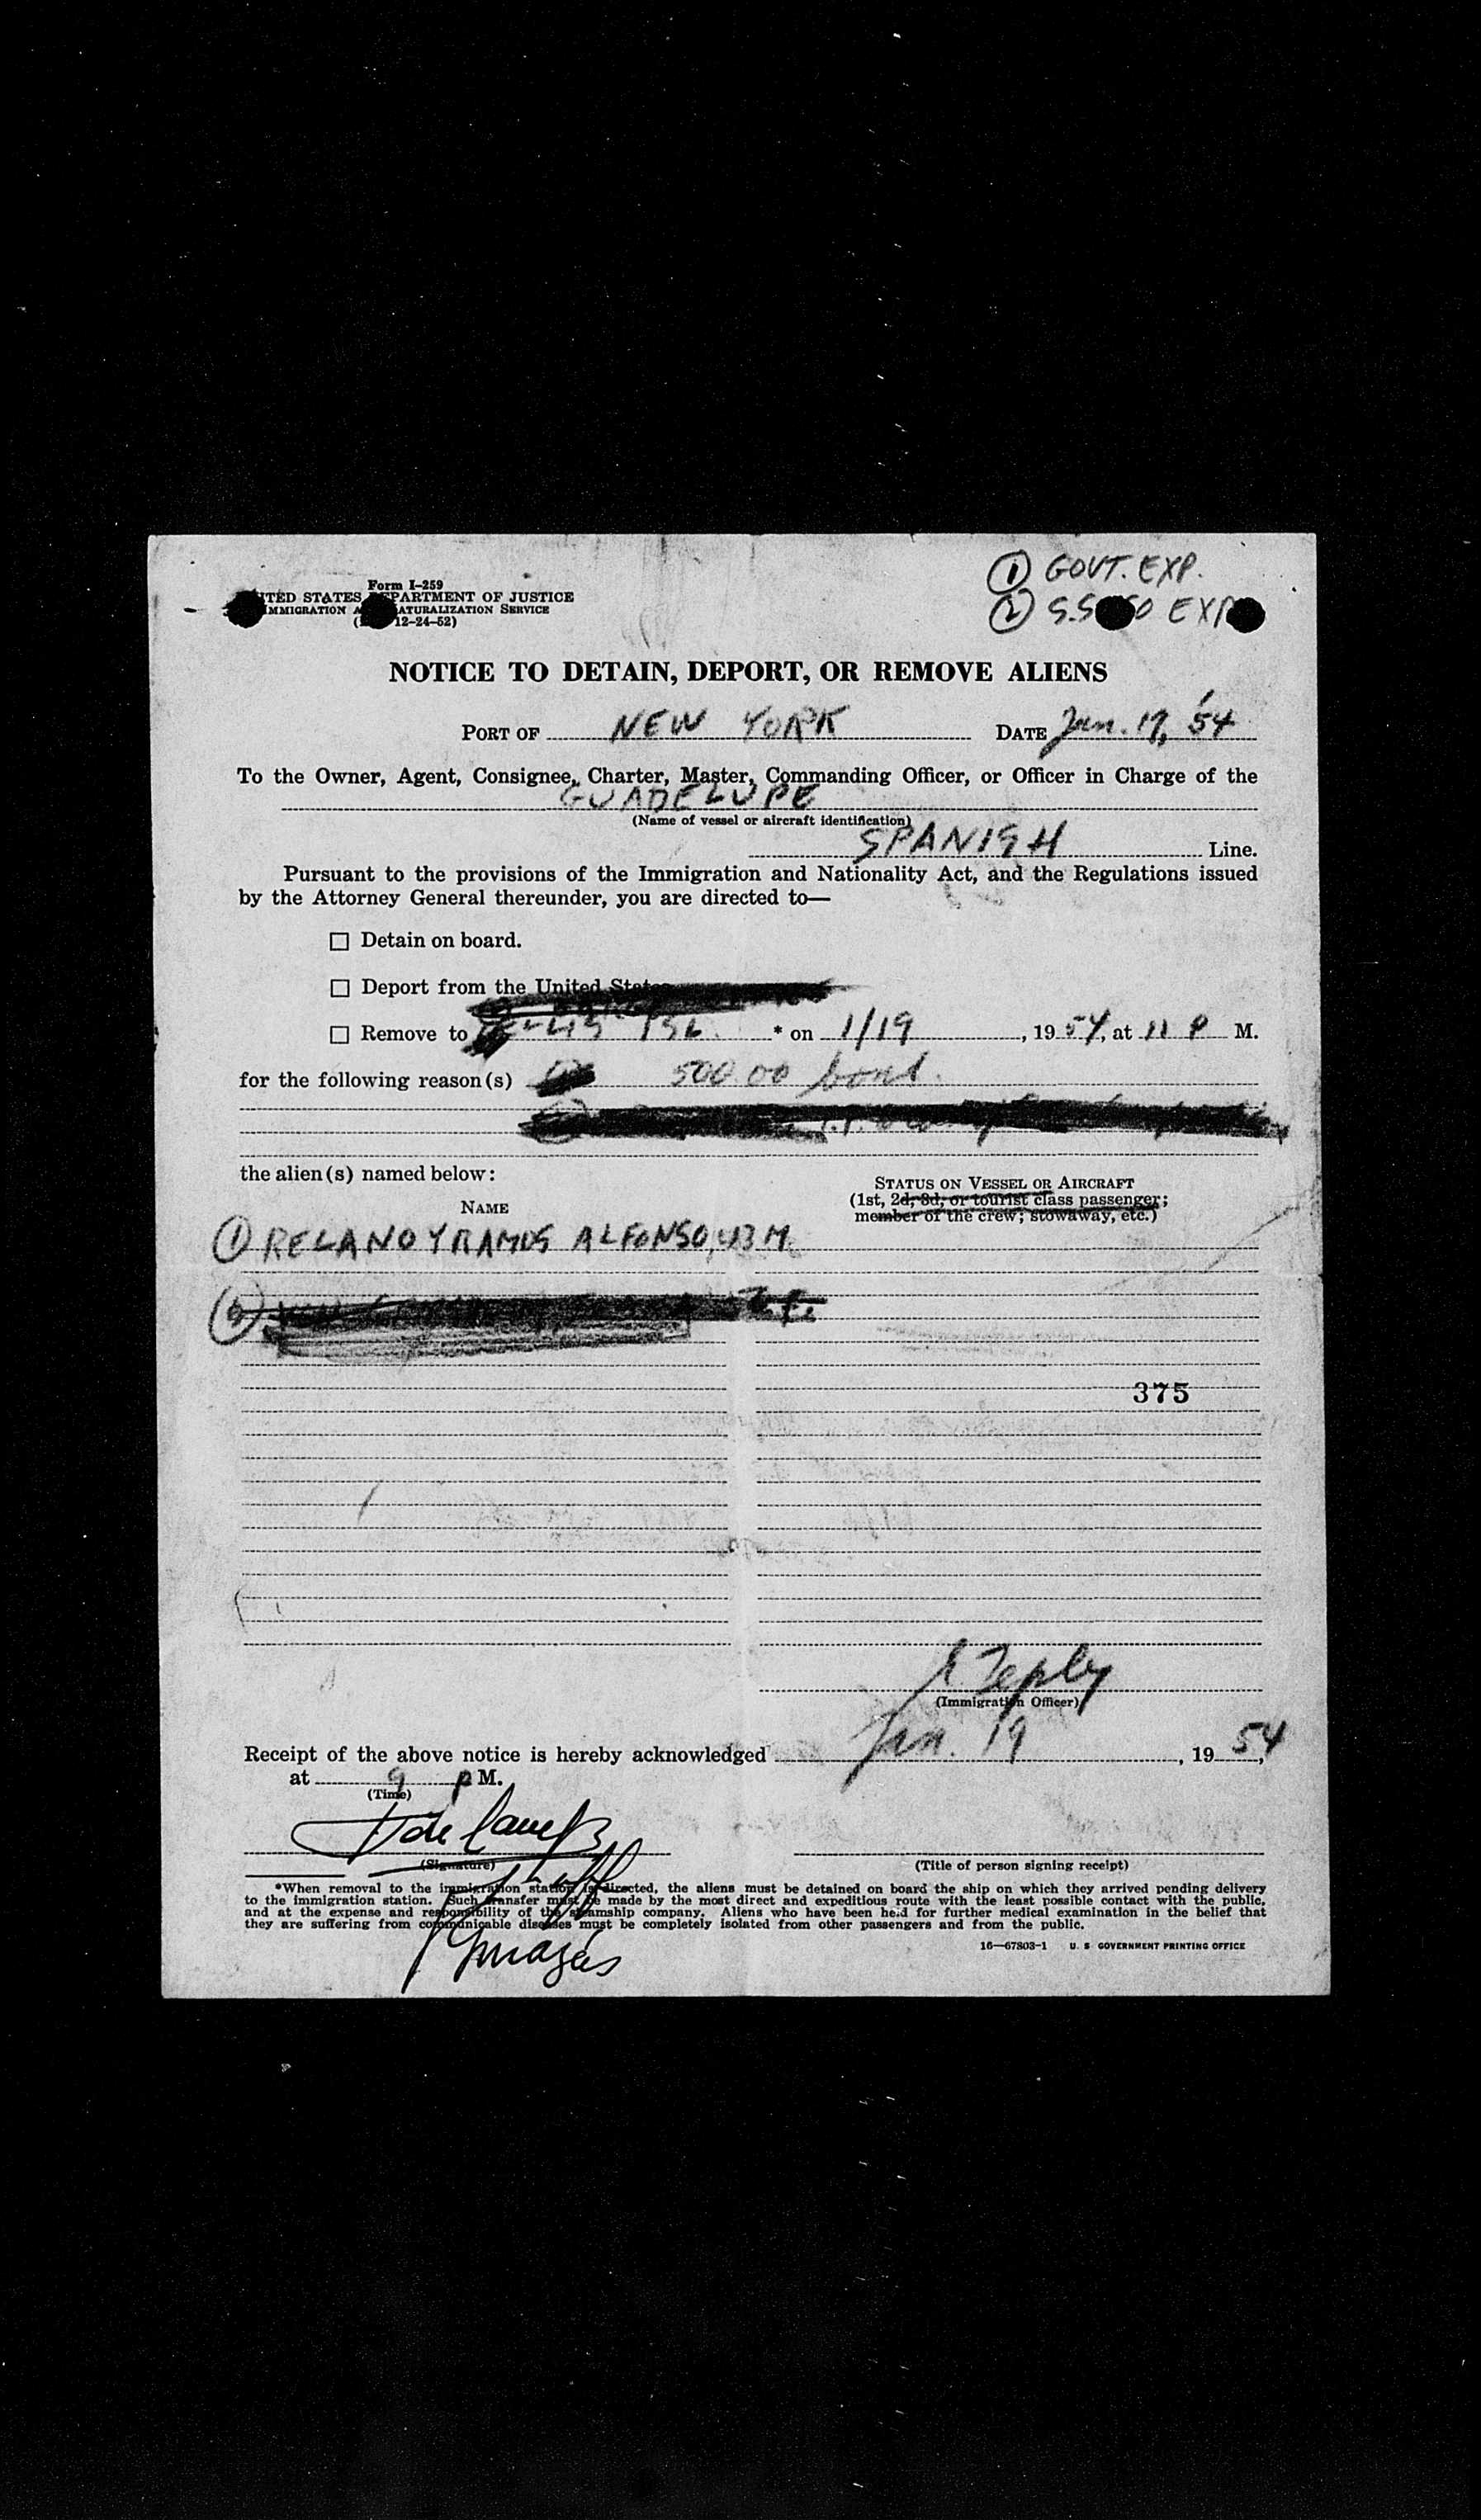 ① GOVT. EXP.
② S.S. CO EXP
Form I-259
UNITED STATES DEPARTMENT OF JUSTICE
IMMIGRATION AND NATURALIZATION SERVICE
12-24-52)
NOTICE TO DETAIN, DEPORT, OR REMOVE ALIENS
PORT OF NEW YORK DATE Jan. 19, '54
To the Owner, Agent, Consignee, Charter, Master, Commanding Officer, or Officer in Charge of the
GUADELUPE
(Name of vessel or aircraft identification)
SPANISH Line.
Pursuant to the provisions of the Immigration and Nationality Act, and the Regulations issued
by the Attorney General thereunder, you are directed to—
☐ Detain on board.
☐ Deport from the United States
☐ Remove to ELLIS ISL. * on 1/19, 1954, at 11 P M.
for the following reason(s) 500.00 bond.
the alien(s) named below:
NAME
STATUS ON VESSEL OR AIRCRAFT
(1st, 2d, 3d, or tourist class passenger;
member of the crew; stowaway, etc.)
① RELANO Y RAMOS ALFONSO, 43 M.
375
Teply
(Immigration Officer)
Receipt of the above notice is hereby acknowledged Jan. 19, 1954,
at 9 P M.
(Time)
(Signature)
(Title of person signing receipt)
*When removal to the immigration station is directed, the aliens must be detained on board the ship on which they arrived pending delivery
to the immigration station. Such transfer must be made by the most direct and expeditious route with the least possible contact with the public,
and at the expense and responsibility of the steamship company. Aliens who have been held for further medical examination in the belief that
they are suffering from communicable diseases must be completely isolated from other passengers and from the public.
16—67803-1 U. S GOVERNMENT PRINTING OFFICE